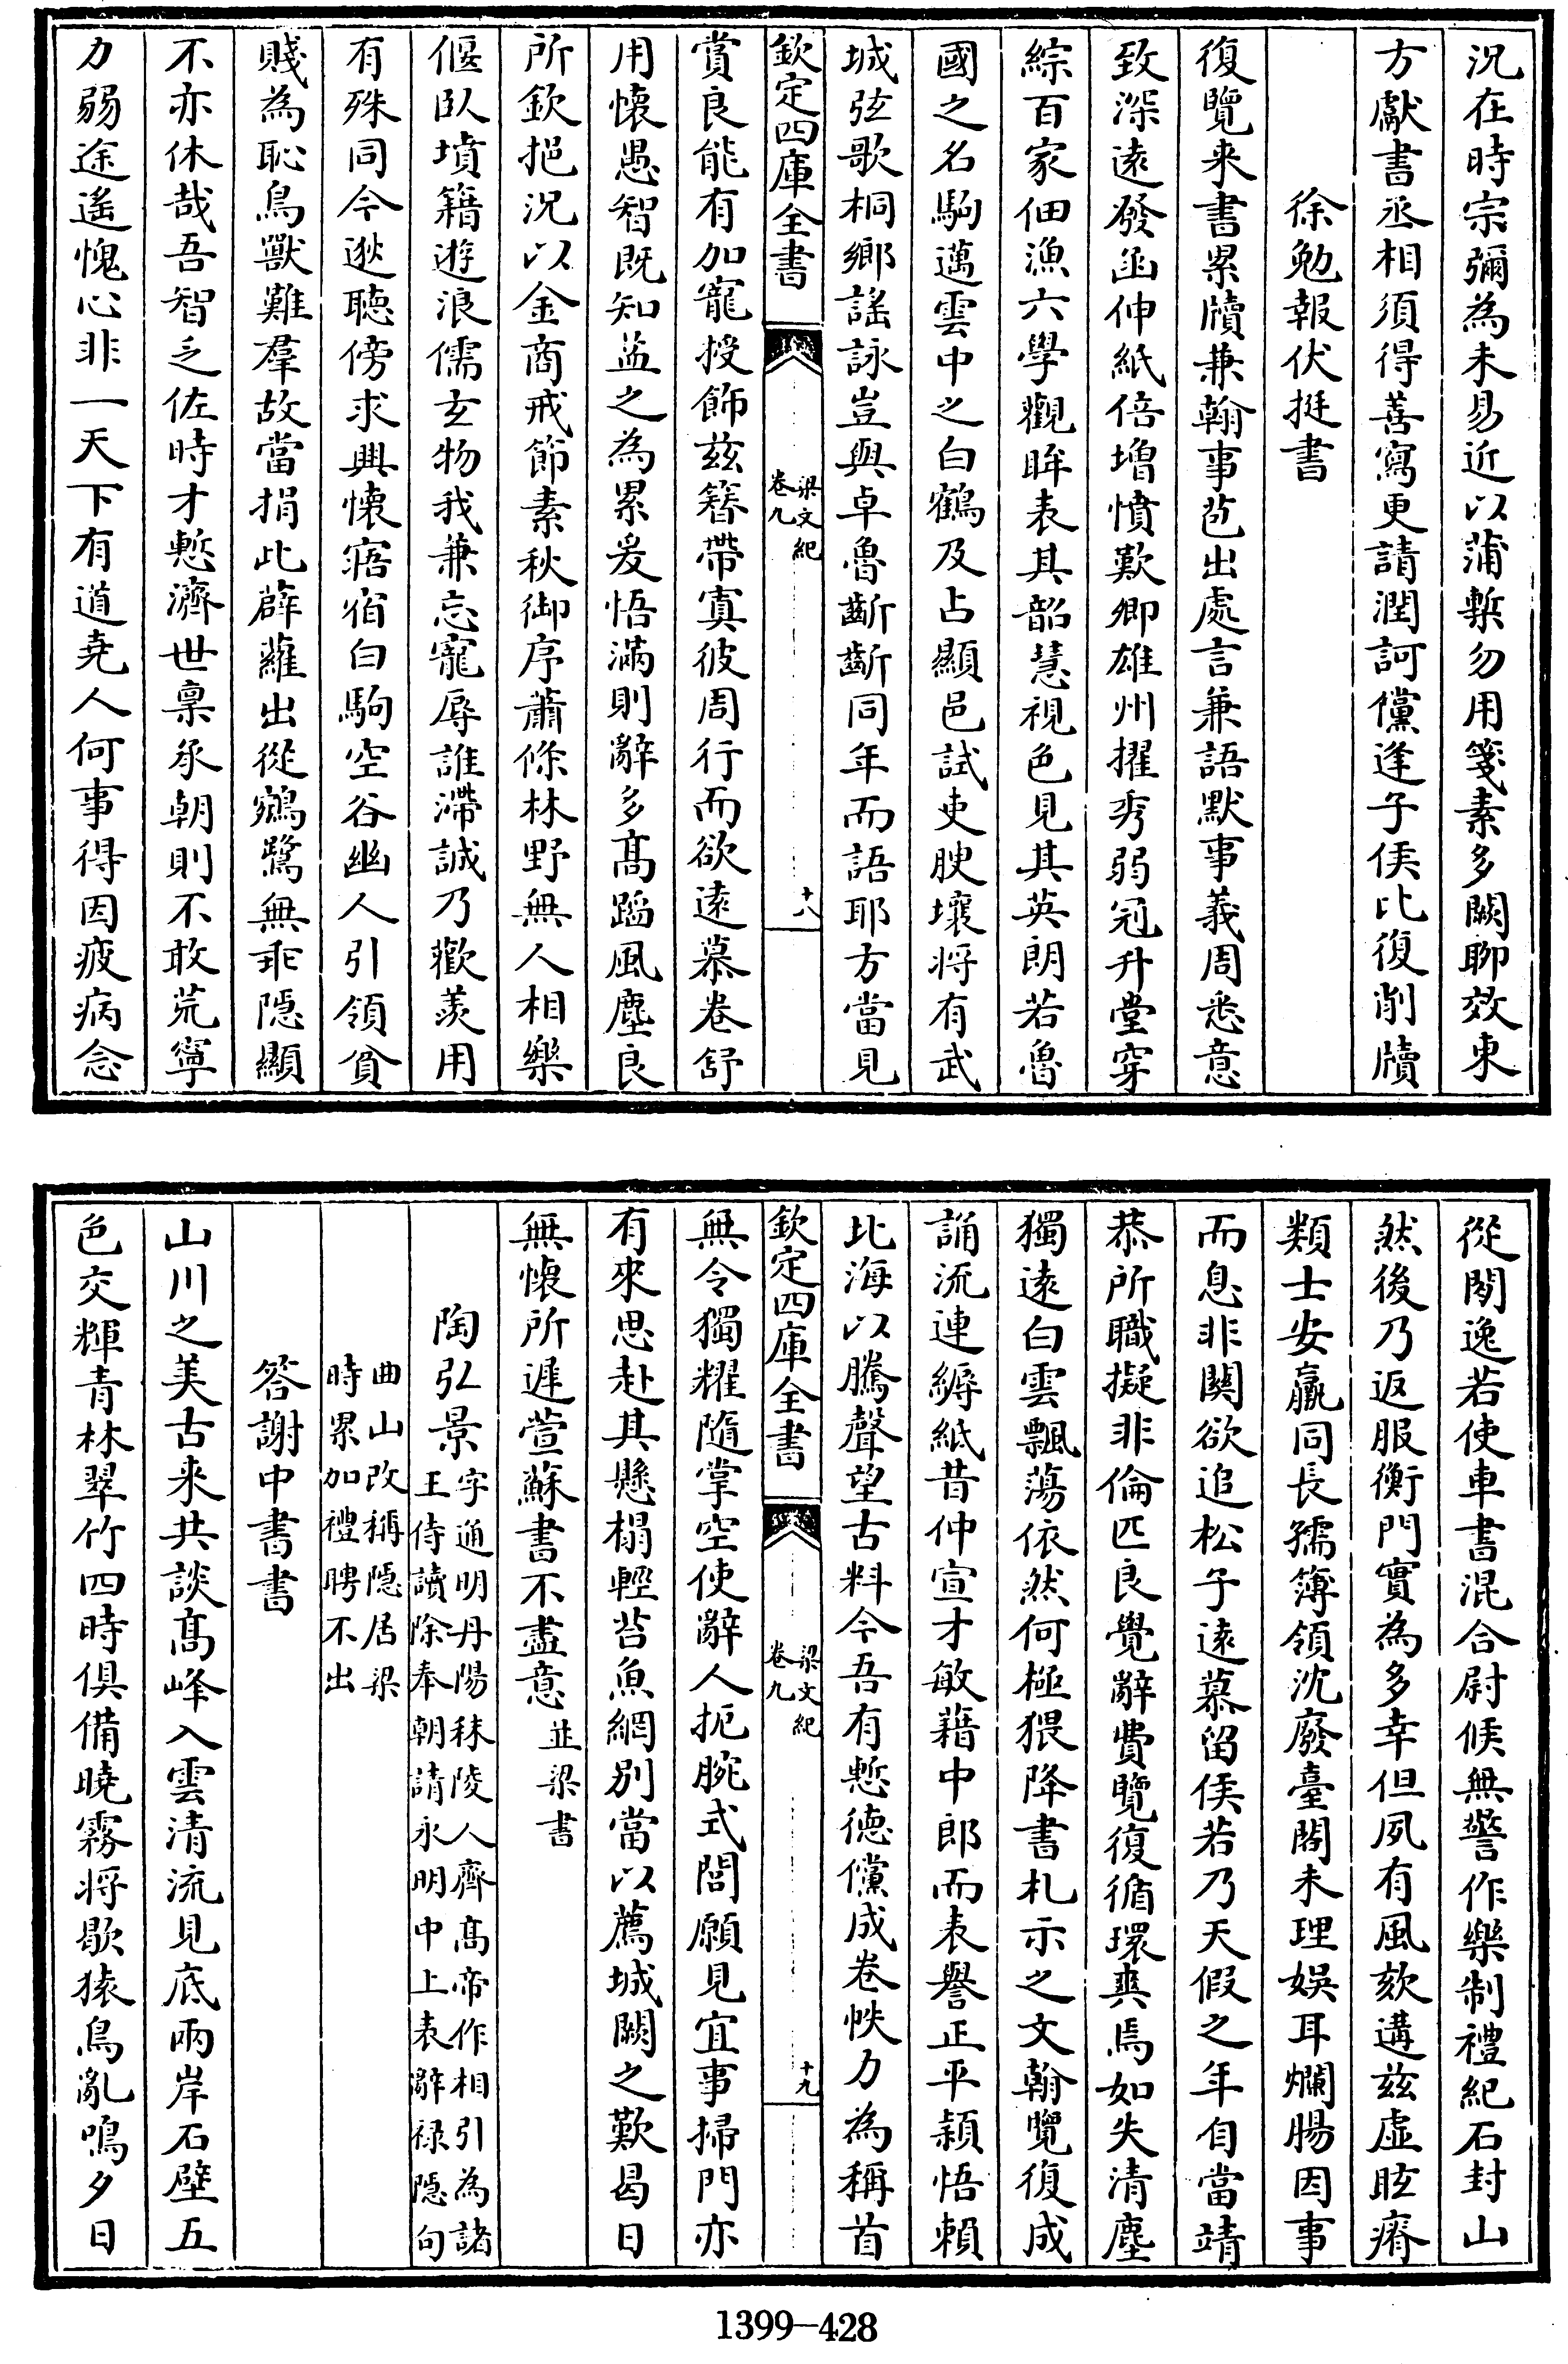 況在時宗彌為未易近以蒲槧勿用箋素多闕聊效東
方獻書丞相須得善寫更請潤訶儻逢子侯比復削牘
徐勉報伏挺書
復覽来書累牘兼翰事苞出處言兼語默事義周悉意
致深遠發函伸紙倍增憤歎卿雄州擢秀弱冠升堂穿
綜百家佃漁六學觀眸表其韶慧視色見其英朗若魯
國之名駒邁雲中之白鶴及占顯邑試吏腴壤將有武
城弦歌桐鄉謠詠豈與卓魯齗齗同年而語耶方當見
欽定四庫全書 梁文紀卷九 十八
賞良能有加寵授飾兹簪帶寘彼周行而欲遠慕卷舒
用懷愚智既知益之為累爰悟滿則辭多髙蹈風塵良
所欽挹況以金商戒節素秋御序蕭條林野無人相樂
偃臥墳籍遊浪儒玄物我兼忘寵辱誰滯誠乃歡羨用
有殊同今逖聽傍求興懷寤宿白駒空谷幽人引領貧
賤為恥鳥獸難羣故當捐此薜蘿出從鵷鷺無乖隱顯
不亦休哉吾智乏佐時才慙濟世稟承朝則不敢荒寧
力弱途遙愧心非一天下有道堯人何事得因疲病念
從閒逸若使車書混合尉候無警作樂制禮紀石封山
然後乃返服衡門實為多幸但夙有風欬遘兹虛眩瘠
類士安羸同長孺簿領沈廢臺閣未理娛耳爛腸因事
而息非關欲追松子遠慕留侯若乃天假之年自當靖
恭所職擬非倫匹良覺辭費覽復循環爽焉如失清塵
獨遠白雲飄蕩依然何極猥降書札示之文翰覽復成
誦流連縟紙昔仲宣才敏藉中郎而表譽正平穎悟賴
北海以騰聲望古料今吾有慙德儻成卷帙力為稱首
欽定四庫全書 梁文紀卷九 十九
無令獨耀隨掌空使辭人扼腕式閭願見宜事掃門亦
有來思赴其懸榻輕苔魚網別當以薦城闕之歎曷日
無懷所遲萱蘇書不盡意並梁書
陶弘景字通明丹陽秣陵人齊髙帝作相引為諸王侍讀除奉朝請永明中上表辭祿隱句
曲山改稱隱居梁時累加禮聘不出
答謝中書書
山川之美古来共談髙峰入雲清流見底兩岸石壁五
色交輝青林翠竹四時俱備曉霧將歇猿鳥亂鳴夕日
1399—428